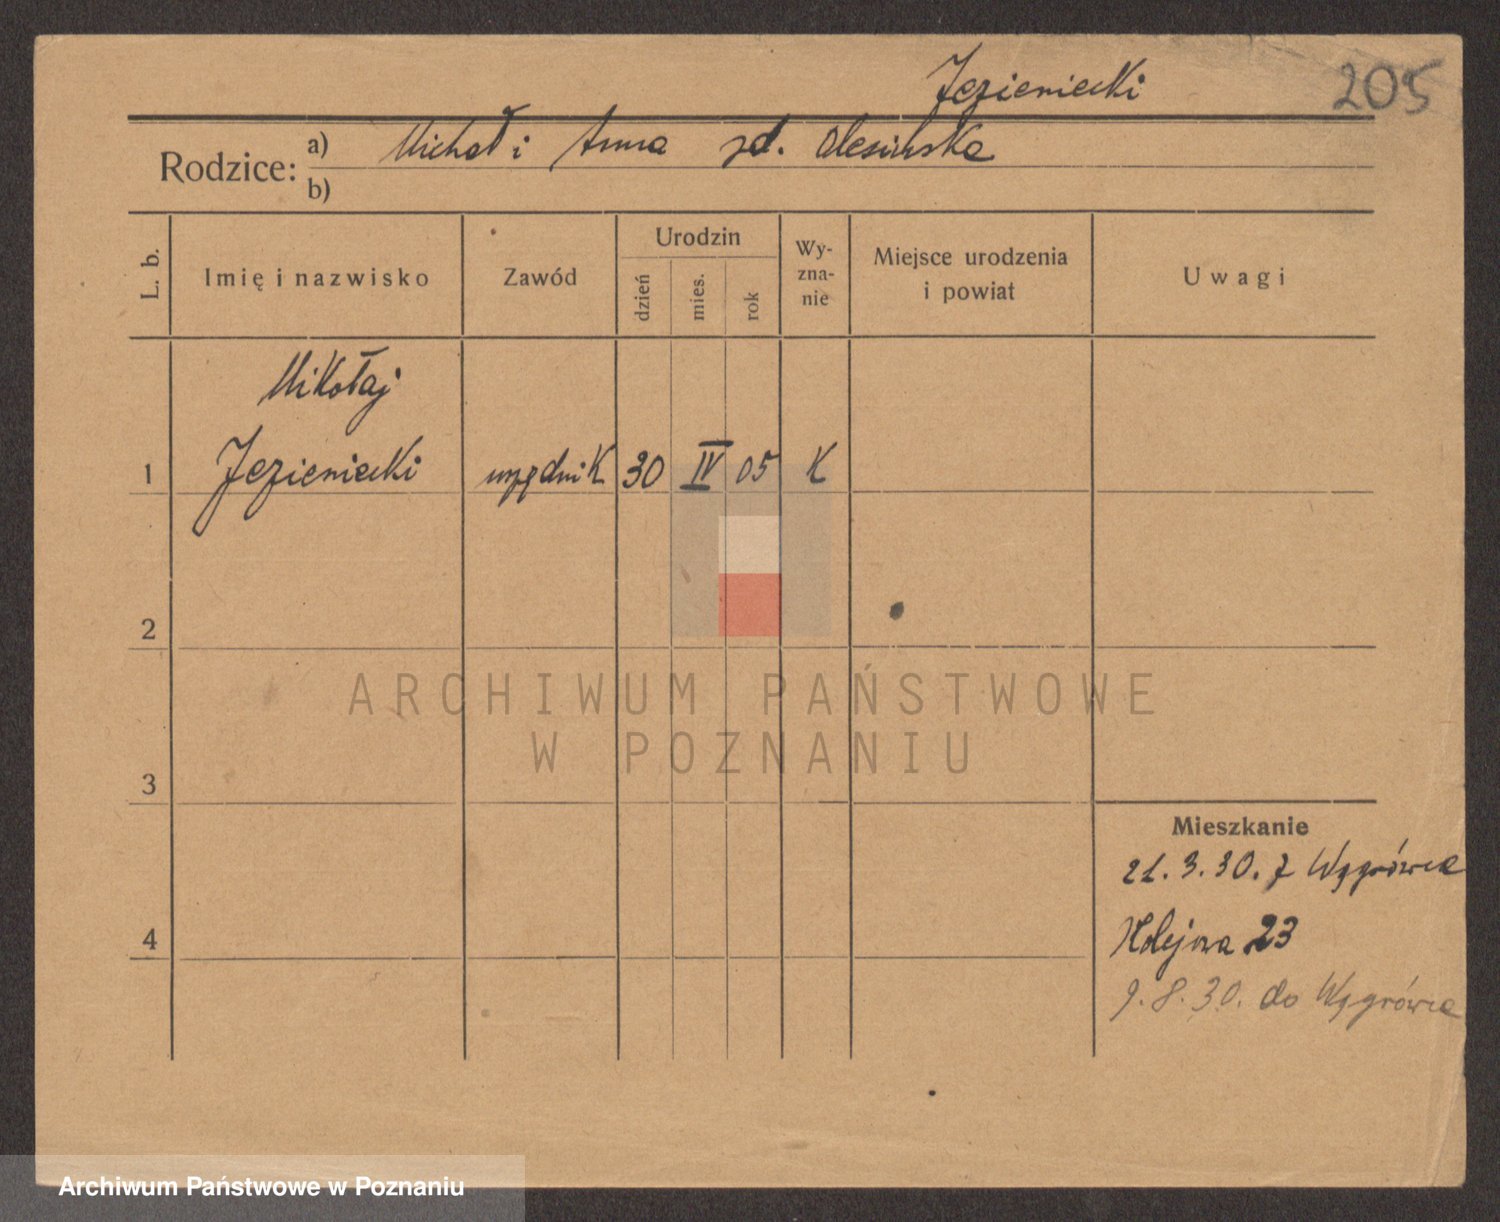 Jezieniecki
205
Rodzice: a) Michał i Anna zd. Olesińska
b)
L. b.
Imię i nazwisko
Zawód
Urodzin
dzień
mies.
rok
Wy-
zna-
nie
Miejsce urodzenia
i powiat
Uwagi
Mikołaj
1 Jezieniecki urzędnik 30 IV 05 K
2
ARCHIWUM PAŃSTWOWE
W POZNANIU
3
Mieszkanie
21. 3. 30. z Wągrówca
4
Kolejowa 23
9. 8. 30. do Wągrówca
Archiwum Państwowe w Poznaniu